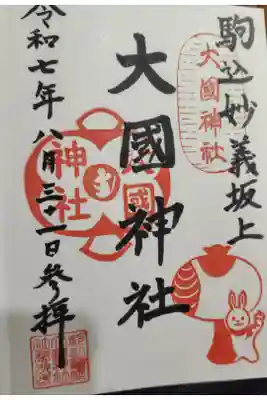 駒込妙義坂上
大國神社
大國神社
大國
神社
令和七年八月三十一日参拝